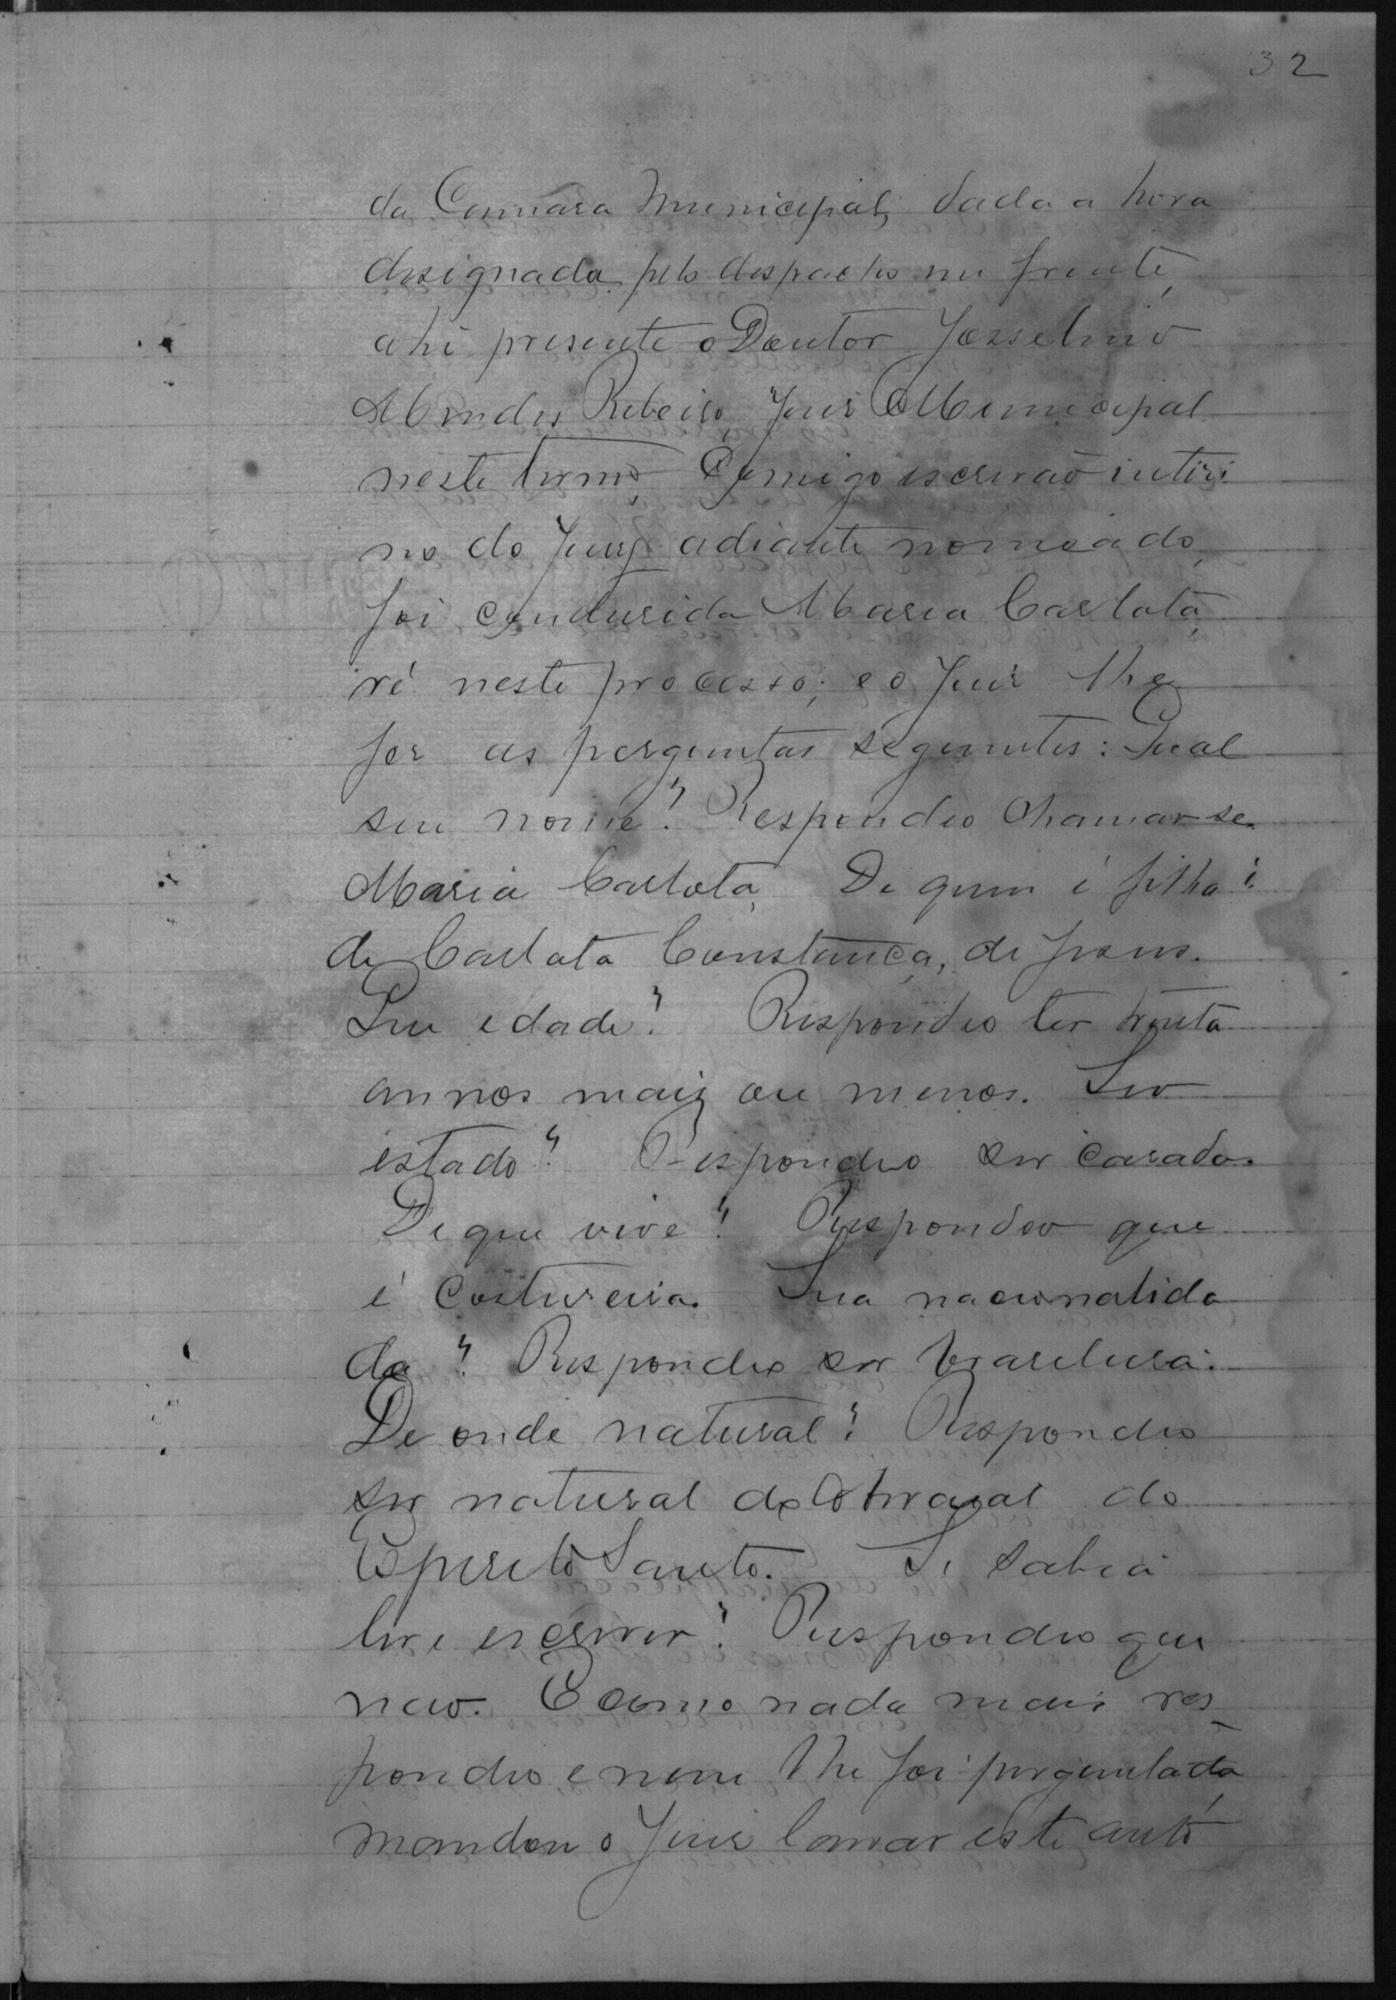 32
da Camara Municipal, dada a hora
designada pelo despacho na frente,
ahi presente o Doutor Josselino
Mendes Ribeiro, Juis Municipal
neste termo, Comigo escrivão interi
no do Jury adiante nomeado,
foi condusida Maria Carlota,
ré neste processo; e o Juis lhe
fes as perguntas seguintes: Qual
seu nome? Respondeo chamar-se
Maria Carlota, De quem é filha?
de Carlota Constança, de Jesus.
Que edade? Respondeo ter trinta
annos mais ou menos. Seo
estado? Respondeo ser casada.
De que vive? Respondeo que
é Costureira. Sua nacionalida
de? Respondeo ser brasileira.
De onde natural? Respondeo
ser natural do Arraial do
Espirito Santo. Si sabia
ler e escrever? Respondeo que
não. E como nada mais res
pondeo e nem lhe foi perguntado
mandou o Juis lavrar este auto